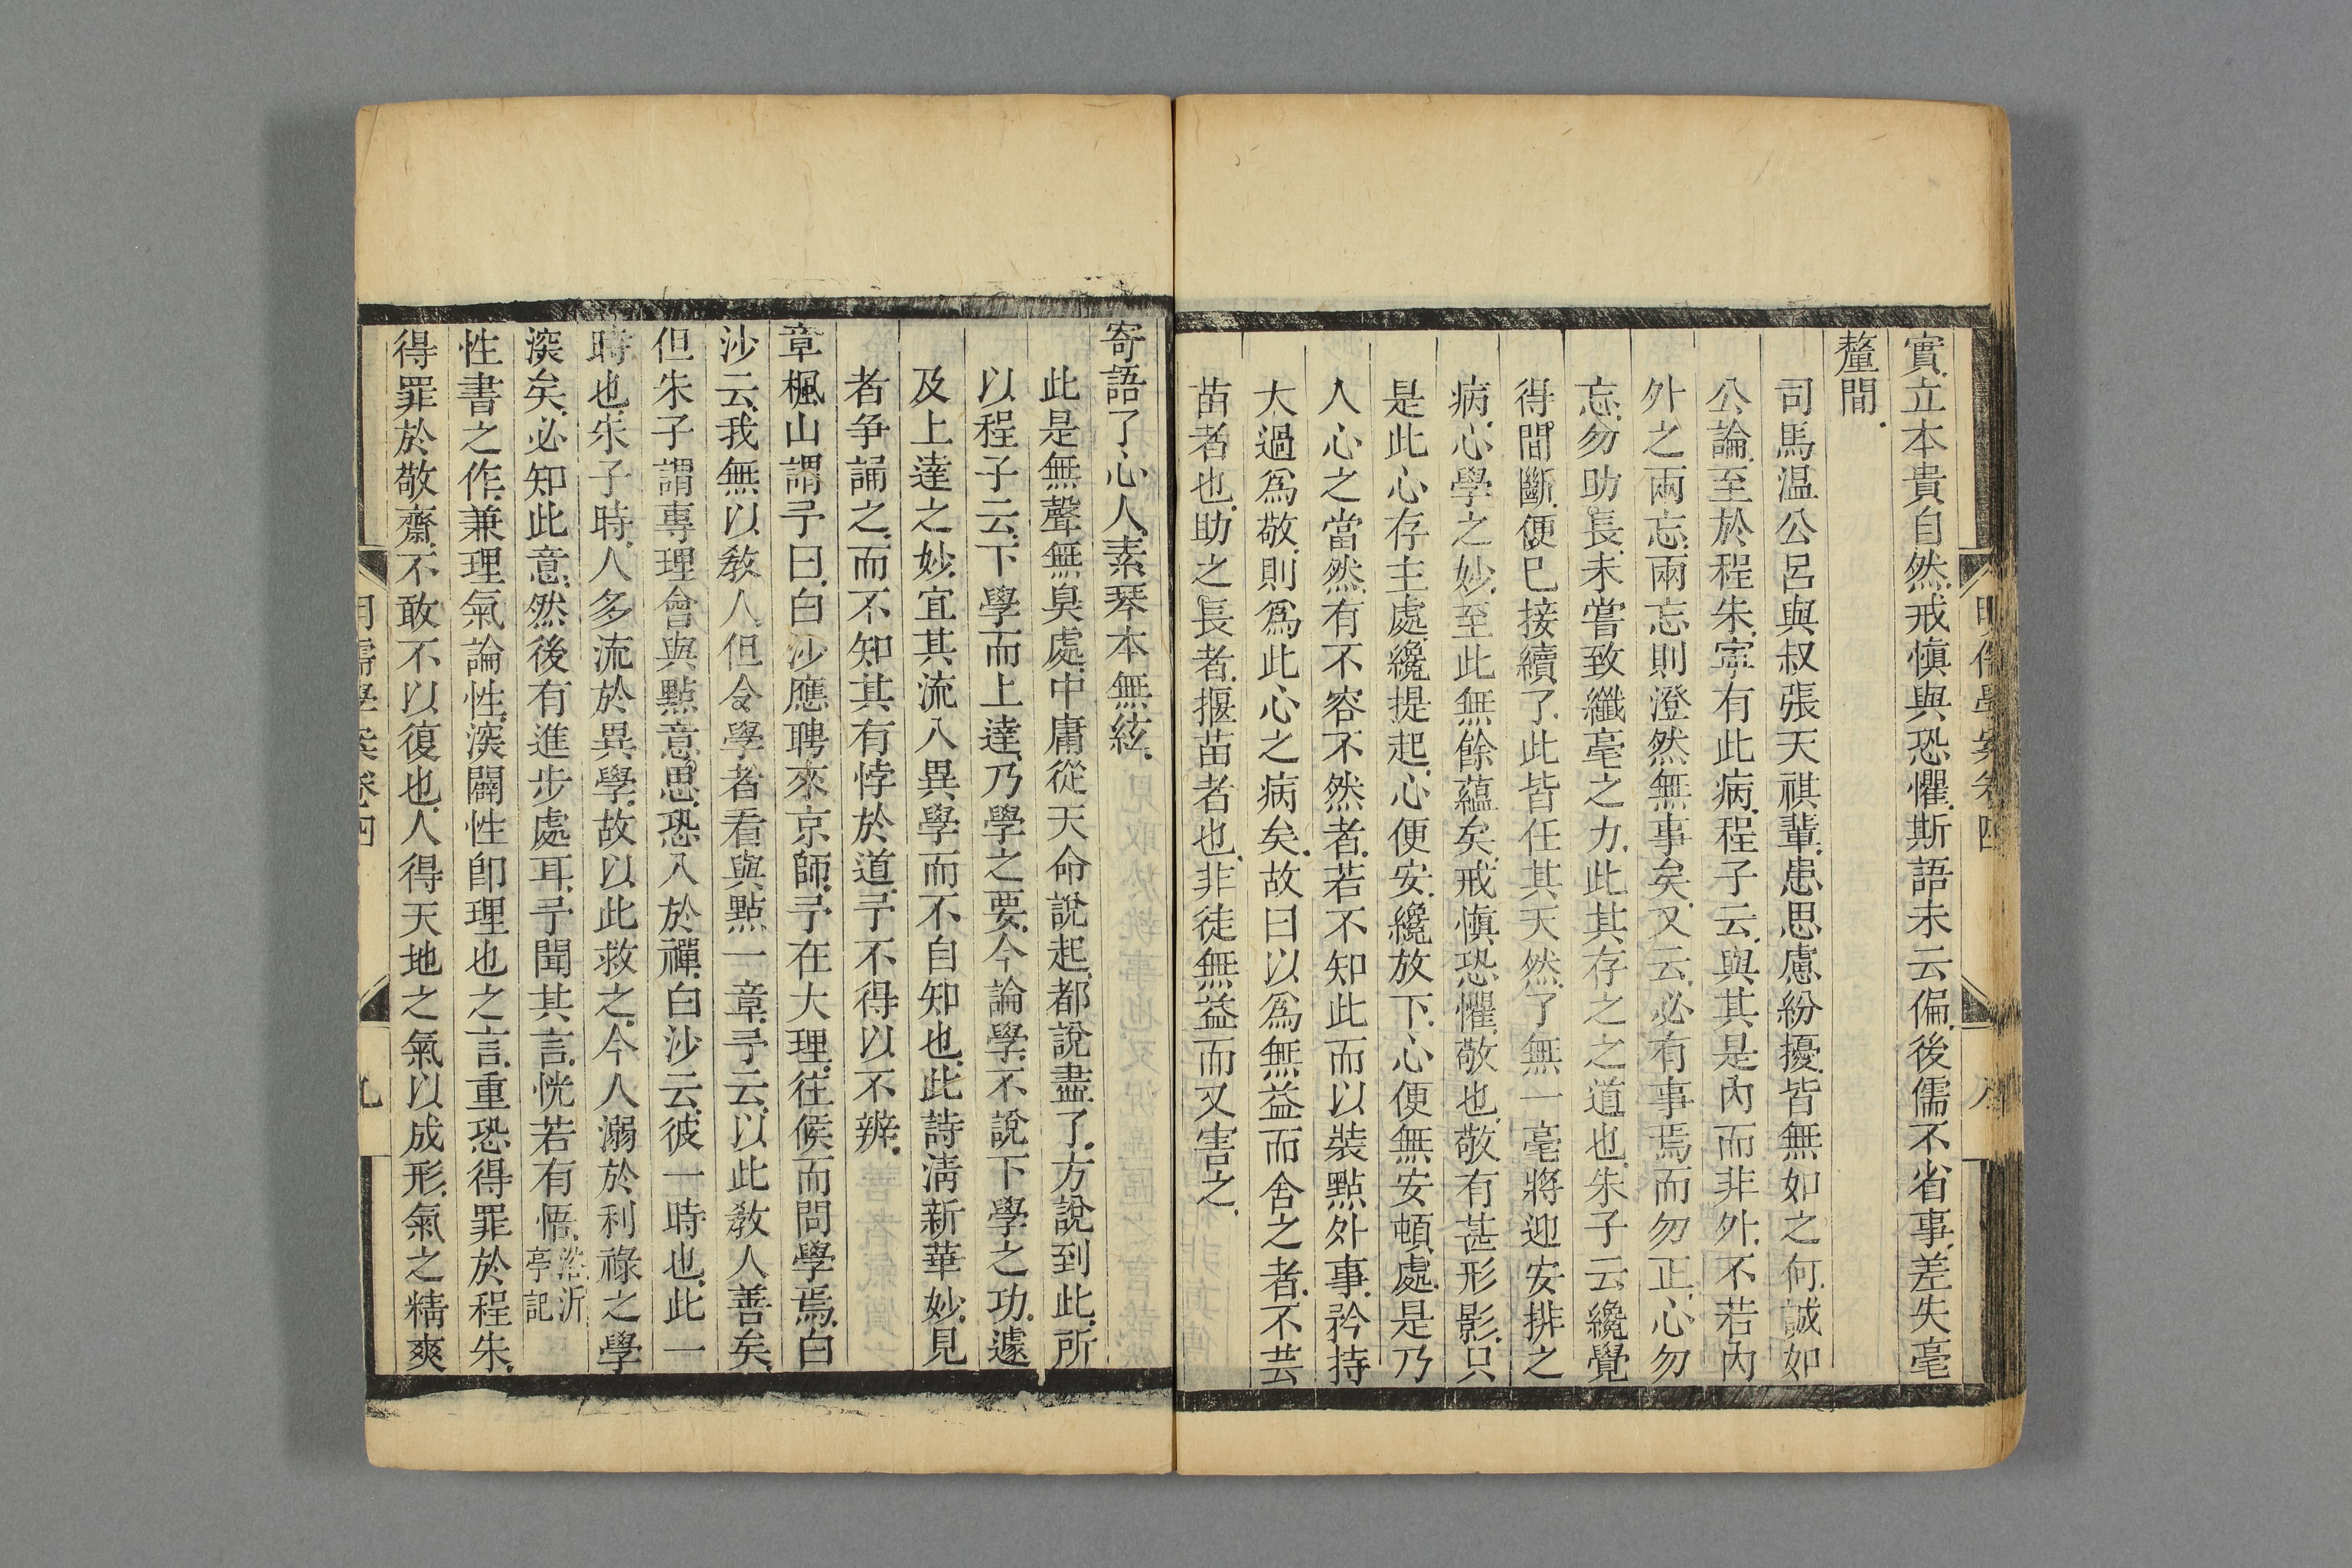 明儒學案卷四
八
實立本貴自然戒愼與恐懼斯語未云偏後儒不省事差失毫
釐間
司馬温公呂與叔張天祺輩患思慮紛擾皆無如之何誠如
公論至於程朱寧有此病程子云與其是內而非外不若內
外之兩忘兩忘則澄然無事矣又云必有事焉而勿正心勿
忘勿助長未嘗致纖毫之力此其存之之道也朱子云纔覺
得間斷便已接續了此皆任其天然了無一毫將迎安排之
病心學之妙至此無餘蘊矣戒愼恐懼敬也敬有甚形影只
是此心存主處纔提起心便安纔放下心便無安頓處是乃
人心之當然有不容不然者若不知此而以裝點外事矜持
大過爲敬則爲此心之病矣故曰以爲無益而舍之者不芸
苗者也助之長者揠苗者也非徒無益而又害之
寄語了心人素琴本無絃
此是無聲無臭處中庸從天命說起都說盡了方說到此所
以程子云下學而上達乃學之要今論學不說下學之功遽
及上達之妙宜其流入異學而不自知也此詩清新華妙見
者争誦之而不知其有悖於道予不得以不辨
章楓山謂予曰白沙應聘來京師予在大理往候而問學焉白
沙云我無以敎人但令學者看與點一章予云以此敎人善矣
但朱子謂專理會與點意思恐入於禪白沙云彼一時也此一
時也朱子時人多流於異學故以此救之今人溺於利祿之學
深矣必知此意然後有進步處耳予聞其言恍若有悟浴沂亭記
性書之作兼理氣論性深闢性卽理也之言重恐得罪於程朱
得罪於敬齋不敢不以復也人得天地之氣以成形氣之精爽
明儒學案卷四
九